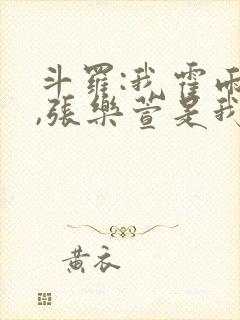 斗羅:我霍雨
,張樂萱是我
黃衣